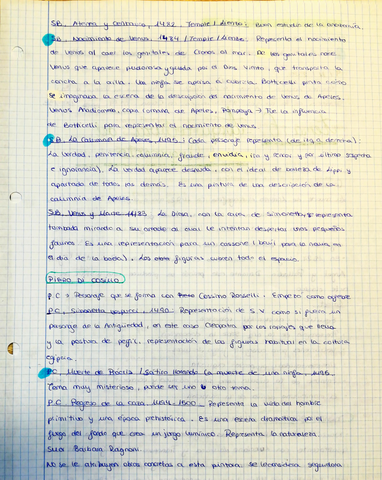 SB, Atenea y Centauro, 1482. Temple / Lienzo: Buen estudio de la anatomía.
SB, Nacimiento de Venus, 1484 / Temple / Lienzo: Representa el nacimiento
de Venus al caer los genitales de Cronos al mar. De los genitales nace
Venus que aparece pudorosa y guiada por el Aura, viento, que transporta la
concha a la orilla. Una ninfa se apresa a cubrirla. Botticelli pinta como
se imaginaba la escena de la descripción del nacimiento de Venus de Apeles.
Venus Anadiomena, copia romana de Apeles, Pompeya → Fue la influencia
de Botticelli para representar el nacimiento de Venus
SB, La Calumnia de Apeles, 1495: Cada personaje representa (de izq a derecha):
La verdad, penitencia, calumnia, fraude, envidia, (rey Midas y por último sospecha
e ignorancia). La verdad aparece desnuda, con el ideal de belleza de
apartada de todos los demás. Es una pintura de una descripción de la
calumnia de Apeles
SB, Venus y Marte, 1483. La diosa, con la cara de Simonetta, se representa
tumbada mirando a su amado al cual le intentan despertar unos pequeños
faunos. Es una representación para un cassone (baúl para la novia en
el día de la boda). Las figuras cubren todo el espacio.
PIERO DI COSIMO
P.C → Personaje que se forma con Cosimo Rosselli. Empezó como orfebre
P.C, Simonetta Vespucci, 1480. Representación de S.V como si fuera un
personaje de la Antigüedad, en este caso Cleopatra por los ropajes que lleva
y la postura de perfil, representación de las figuras habitual en la cultura
egipcia.
P.C, Muerte de Procris / Sátiro llorando la muerte de una ninfa, 1495.
Tema muy misterioso, puede ser uno u otro tema.
P.C Regreso de la caza, 1494-1500. Representa la vida del hombre
primitivo y una época prehistórica. Es una escena dramática por el
fuego del fondo que crea un juego lumínico. Representa la naturaleza
Suor Barbara Ragnoni
No se le atribuyen obras concretas a esta pintora, se le considera seguidora